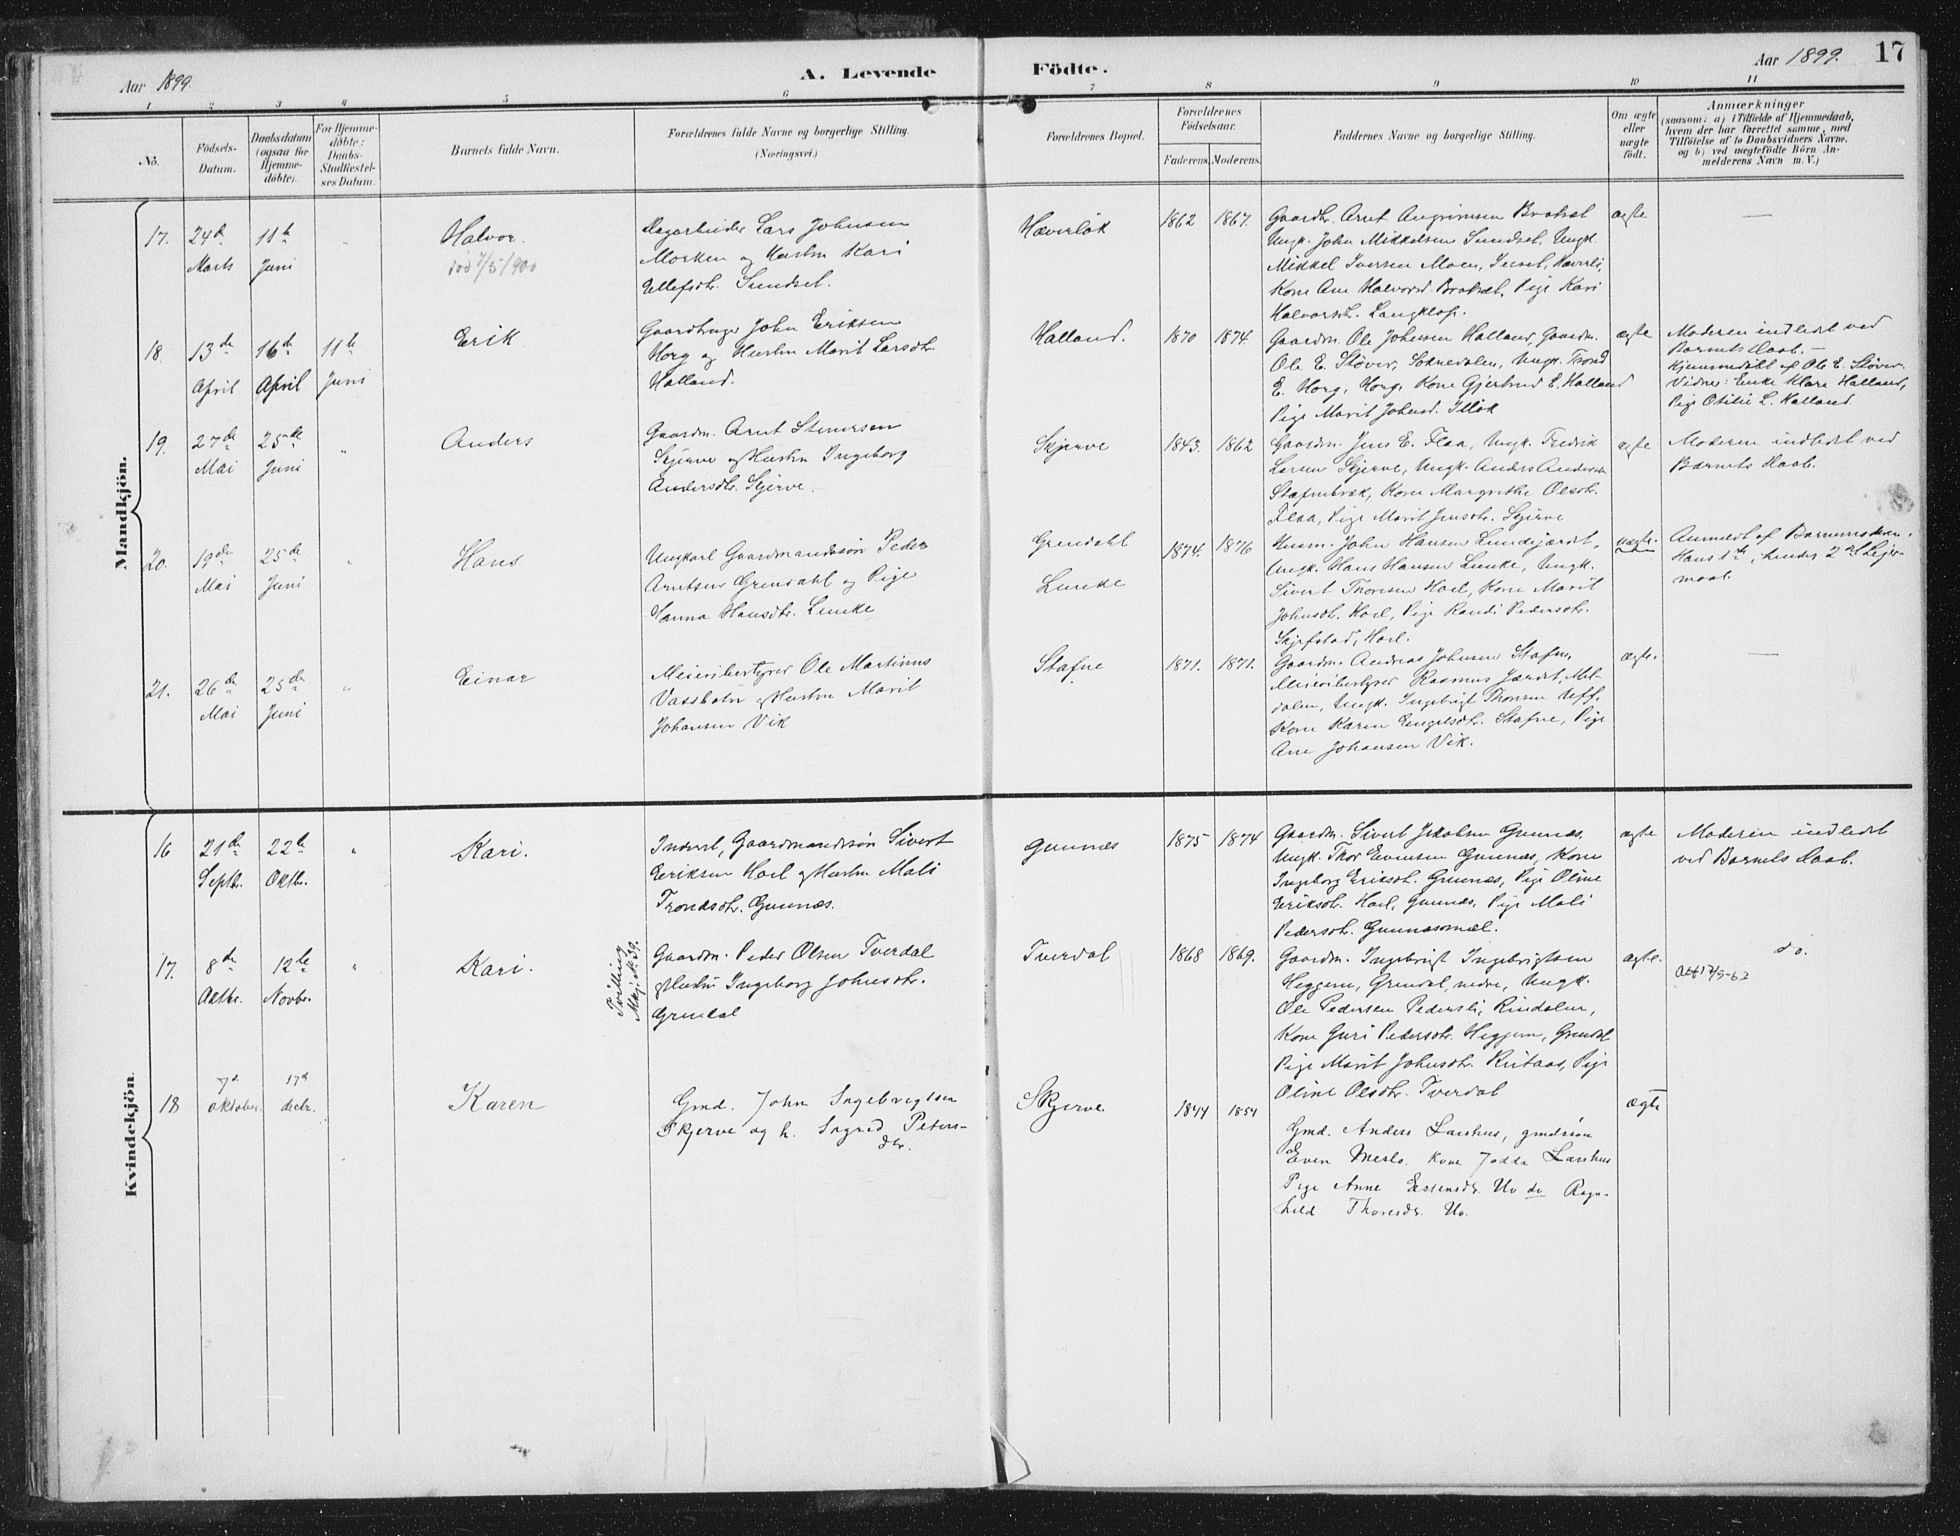 Aar 1899.
A. Levende Födte.
Aar 1899.
17
1 2 3 4 5 6 7 8 9 10 11
No.
Födsels-
Datum.
Daabsdatum
(ogsaa for
Hjemme-
döbte).
For Hjemme-
döbte:
Daabs-
Stadfæstel-
ses Datum.
Barnets fulde Navn.
Forældrenes fulde Navne og borgerlige Stilling.
(Næringsvei.)
Forældrenes Bopæl.
Forældrenes
Födselsaar.
Faderens. Moderens.
Faddernes Navne og borgerlige Stilling.
Om ægte
eller
uægte
födt.
Anmærkninger
(saasom: a) i Tilfælde af Hjemmedaab,
hvem der har forrettet samme, med
Tilföielse af to Daabsvidners Navne.
og b) ved uægtefödte Börn An-
melderens Navn m. V.)
Mandkjön.
17. 24de Marts
11te Juni
"
Halvor.
död 7/5/900
Dagarbeider Lars Johnsen
Morken og Hustru Kari
Ellefsdtr. Sundset.
Hæverlök
1862 1867.
Gaardbr. Arnt Angrimsen Brataset
Ungk. John Mikkelsen Sundset, Ungk.
Mikkel Iversen Moen,
Kone Ane Halvorsd. Pige Kari
Halvorsdtr. Langklop.
ægte
—
18. 13de April
16de April
11te Juni
Erik
Gaardbruger John Eriksen
Horg og Hustru Marit Larsdtr.
Halland.
Halland.
1870 1874
Gaardm. Ole Johnsen Halland, Gaardm.
Ole E. Stöver, Soknedalen, Ungk. Trond
E. Horg, Horg, Kone Gjertrud E. Halland
Pige Marit Johnsd. Illök
ægte
Moderen indledet ved
Barnets Daab.—
Hjemmedöbt af Ole E. Stöver.
Vidner: Enke Klara Halland,
Pige Otilie L. Halland
19. 27de Mai
25de Juni
"
Anders
Gaardm. Arnt Stenersen
Skjerve og Hustru Ingeborg
Andersdtr. Skjerve.
Skjerve
1843. 1862
Gaardm. Jens E. Flaa, Ungk. Fredrik
Larsen Skjerve, Ungk. Anders Andersen
Stafnebræk, Kone Margrethe Olsdtr.
Flaa, Pige Marit Jensdtr. Skjerve
ægte
Moderen indledet ved
Barnets Daab.
20. 19de Mai
25de Juni
"
Hans
Ungkarl Gaardmandssön Peder
Arntsen Grendahl og Pige
Hanna Hansdtr. Lunke
Grendahl
Lunke
1874. 1876
Husm. John Hansen Lundejærdet,
Ungk. Hans Hansen Lunke, Ungk.
Sivert Thoresen Hoel, Kone Marit
Johnsdtr. Hoel, Pige Randi Pedersdtr.
Skjefstad, Hoel.
uægte.
Anmeldt af Barnemoderen.
Hans 1ste, hendes 2det Leier-
maal.
21. 26de Mai
25de Juni
"
Einar
Meieribestyrer Ole Martinus
Vassbotn og Hustru Marit
Johansen Vik
Stafne
1871. 1871.
Gaardm. Andreas Johnsen Stafne,
Meieribestyrer Rasmus Jærdet, Mel-
dalen, Ungk. Ingebrigt Thoresen Uff,
Kone Karen Engelsdtr. Stafne, Pige
Ane Johansen Vik.
ægte.
—
Kvindekjön.
16 21de Septbr.
22de Oktbr.
"
Kari.
Inderst, Gaardmandssön Sivert
Eriksen Hoel og Hustru Mali
Trondsdtr. Gunnæs.
Gunnæs
1875 1874
Gaardm. Sivert Jakobsen Gunnæs.
Ungk. Thor Evensen Gunnæs, Kone
Ingeborg Eriksdtr. Gunnæs, Pige Oline
Eriksdtr. Hoel, Gunnæs, Pige Mali
Pedersdtr. Gunnæsmæl.
ægte
Moderen indledet
ved Barnets Daab.
17. 8de Oktbr.
12te Novbr.
"
Kari.
Tvilling
Gaardm. Peder Olsen Tverdal
og Hustru Ingeborg Johnsdtr.
Grendal
Tverdal
1868 1869.
Gaardm. Ingebrigt Ingebrigtsen
Heggem, Grendal, nedre, Ungk.
Ole Pedersen Pedersli, Rindalen,
Kone Guri Pedersdtr. Heggem, Grendal
Pige Marit Johnsdtr. Pige
Oline Olsdtr. Tverdal
ægte.
do.
18 7d oktober.
17d decbr.
Karen
Gmd. John Ingebrigtsen
Skjerve og h. Ingrid Peters-
dtr.
Skjerve
1844 1854
Gmd. Anders Larshus, gmdssön
Even Merlo. Kone Jodda Larshus
Pige Anne Estensdr. Uv do Ragn-
hild Thoresdr. Uv.
ægte